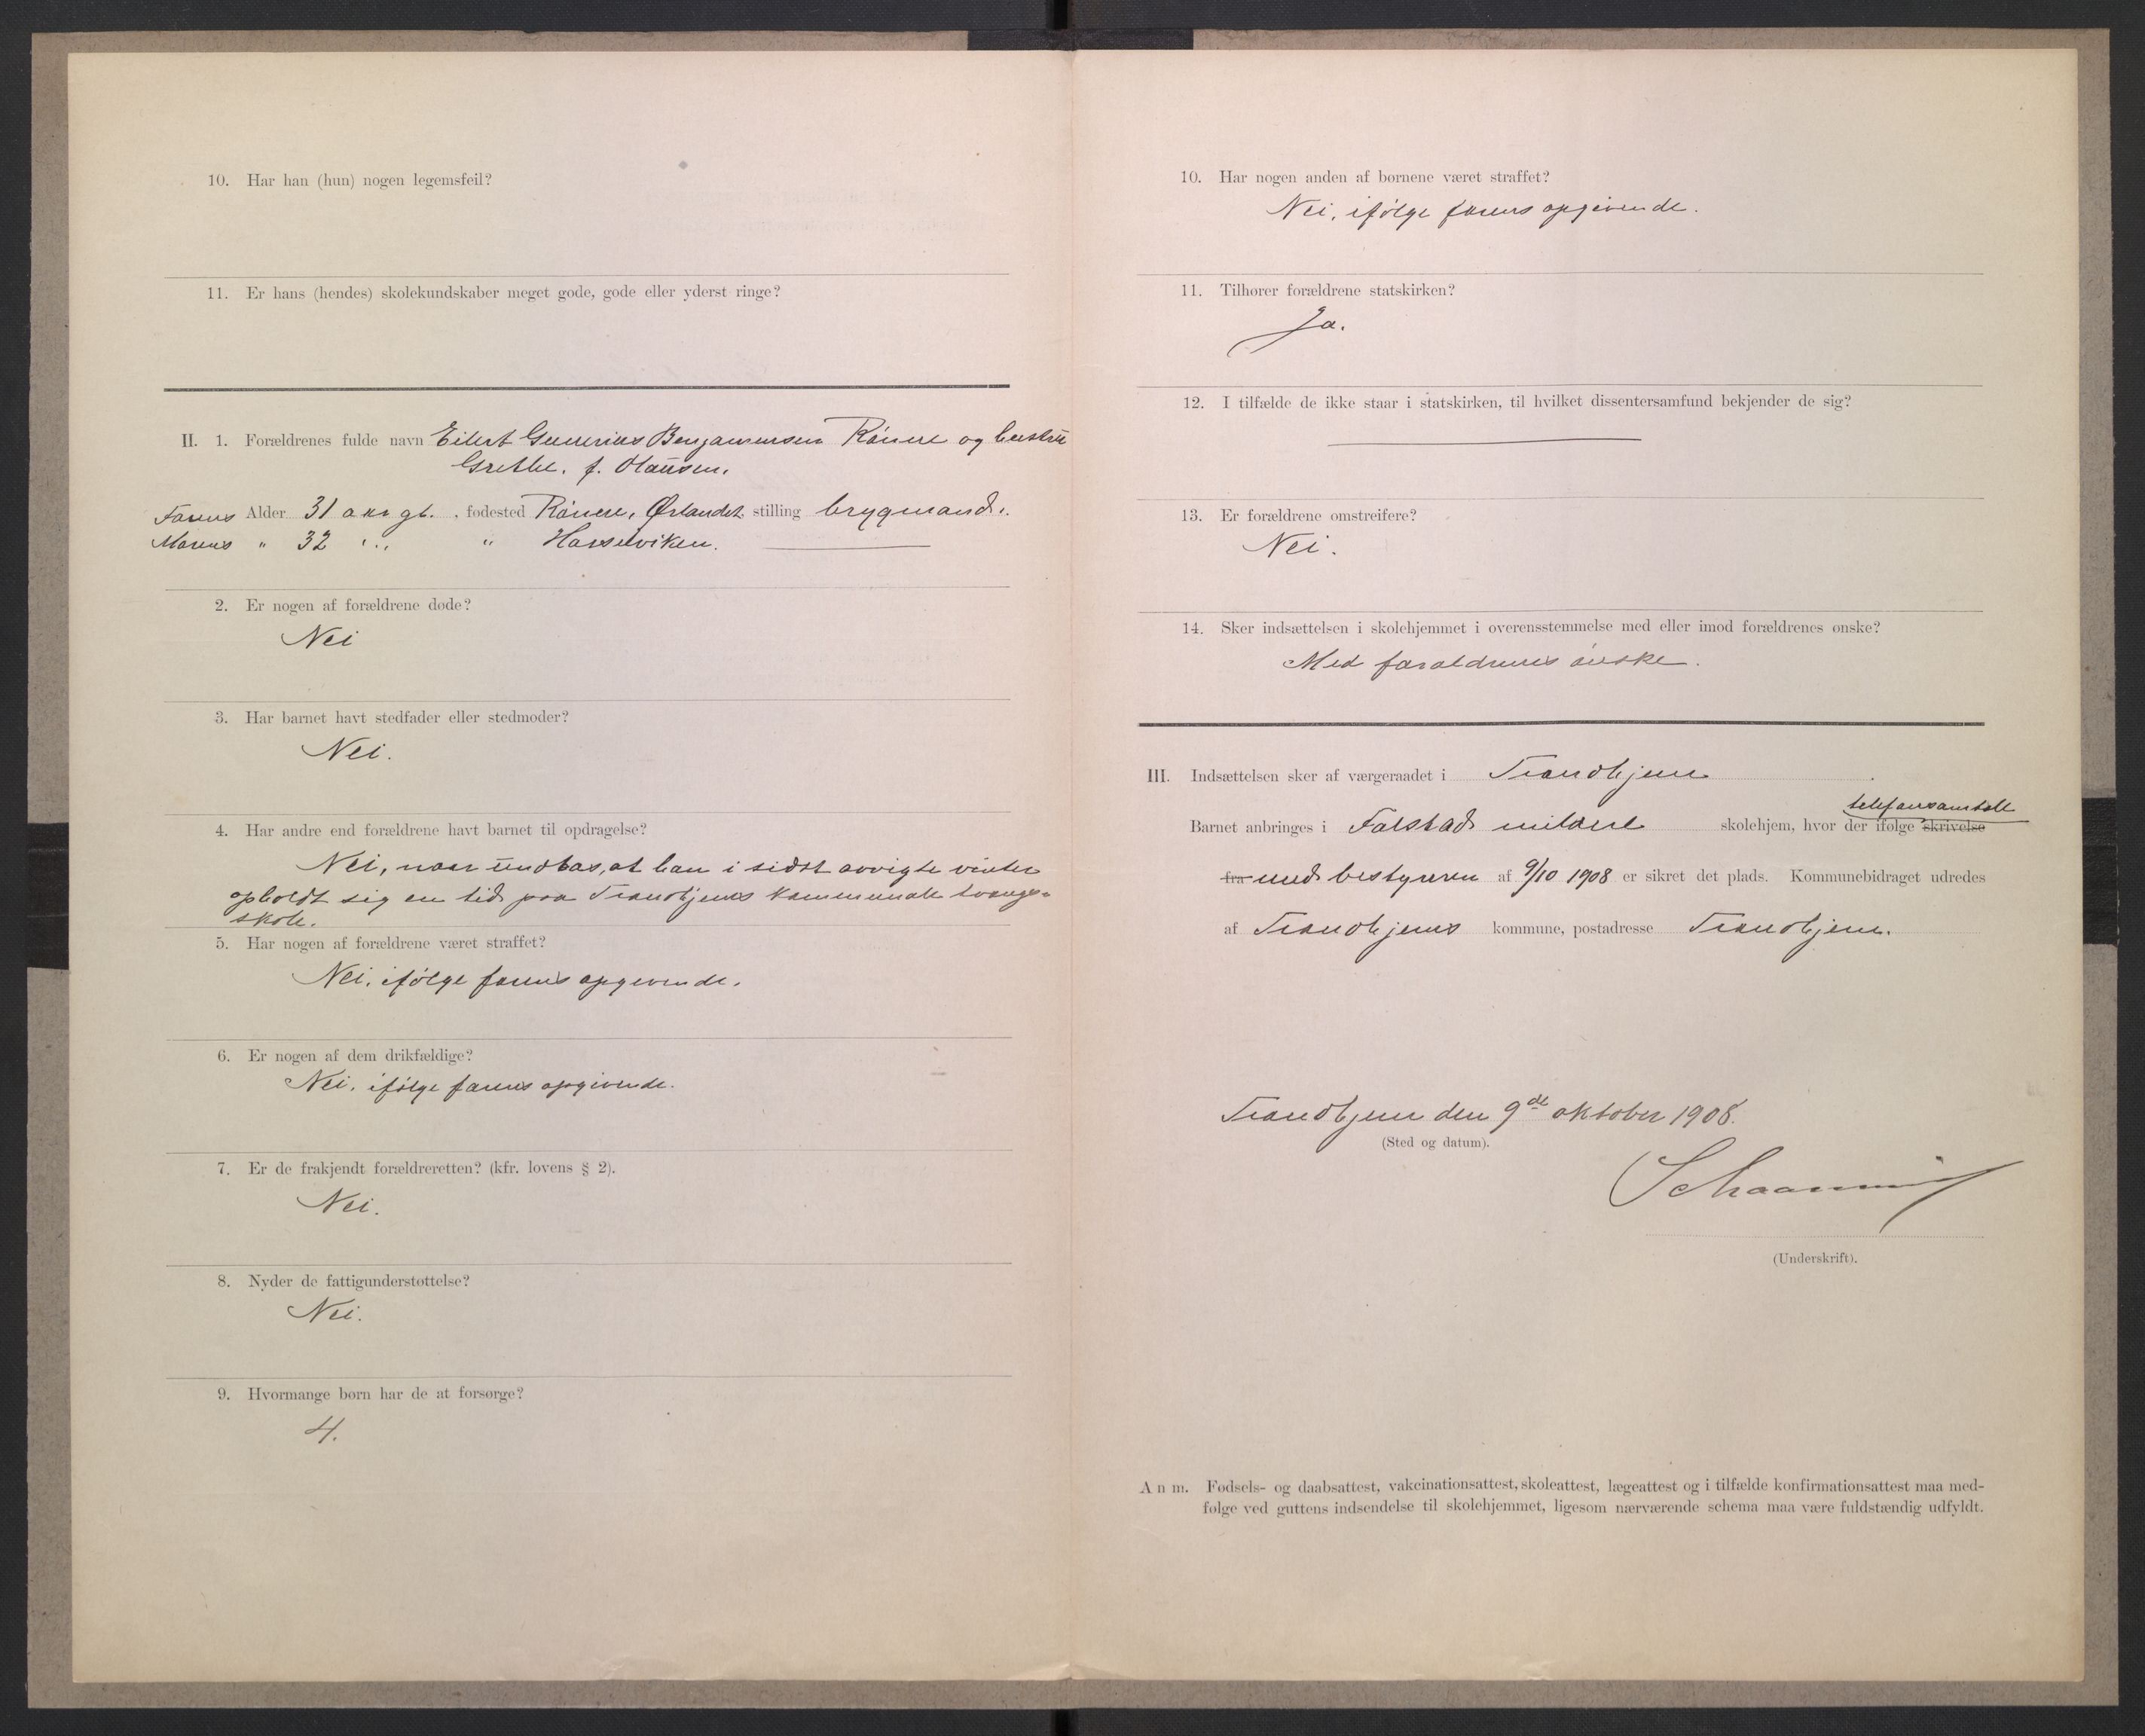 10. Har han (hun) nogen legemsfeil?
11. Er hans (hendes) skolekundskaber meget gode, gode eller yderst ringe?
II. 1. Forældrenes fulde navn Eilert Benjaminsen og hustru
Grethe, f. Hansen.
Farens Alder 31 aar gl., fødested Ørlandet, stilling brygmand.
Morens " 32 " " " Hasselviken.
2. Er nogen af forældrene døde?
Nei
3. Har barnet havt stedfader eller stedmoder?
Nei.
4. Har andre end forældrene havt barnet til opdragelse?
Nei, naar undtas, at han i sidst avvigte vinter
opholdt sig en tid paa Trondhjems kommunale tvangs-
skole.
5. Har nogen af forældrene været straffet?
Nei, ifølge farens opgivende.
6. Er nogen af dem drikfældige?
Nei, ifølge farens opgivende.
7. Er de frakjendt forældreretten? (kfr. lovens § 2).
Nei.
8. Nyder de fattigunderstøttelse?
Nei.
9. Hvormange børn har de at forsørge?
4.
10. Har nogen anden af børnene været straffet?
Nei, ifølge farens opgivende.
11. Tilhører forældrene statskirken?
Ja.
12. I tilfælde de ikke staar i statskirken, til hvilket dissentersamfund bekjender de sig?
13. Er forældrene omstreifere?
Nei.
14. Sker indsættelsen i skolehjemmet i overensstemmelse med eller imod forældrenes ønske?
Med forældrenes ønske.
III. Indsættelsen sker af værgeraadet i Trondhjem.
telefonsamtale
Barnet anbringes i Falstad mildere skolehjem, hvor der ifølge skrivelse
fra med bestyreren af 9/10 1908 er sikret det plads. Kommunebidraget udredes
af Trondhjems kommune, postadresse Trondhjem.
Trondhjem den 9de oktober 1908.
(Sted og datum).
Schaanning
(Underskrift).
Anm. Fødsels- og daabsattest, vakcinationsattest, skoleattest, lægeattest og i tilfælde konfirmationsattest maa med-
følge ved guttens indsendelse til skolehjemmet, ligesom nærværende schema maa være fuldstændig udfyldt.